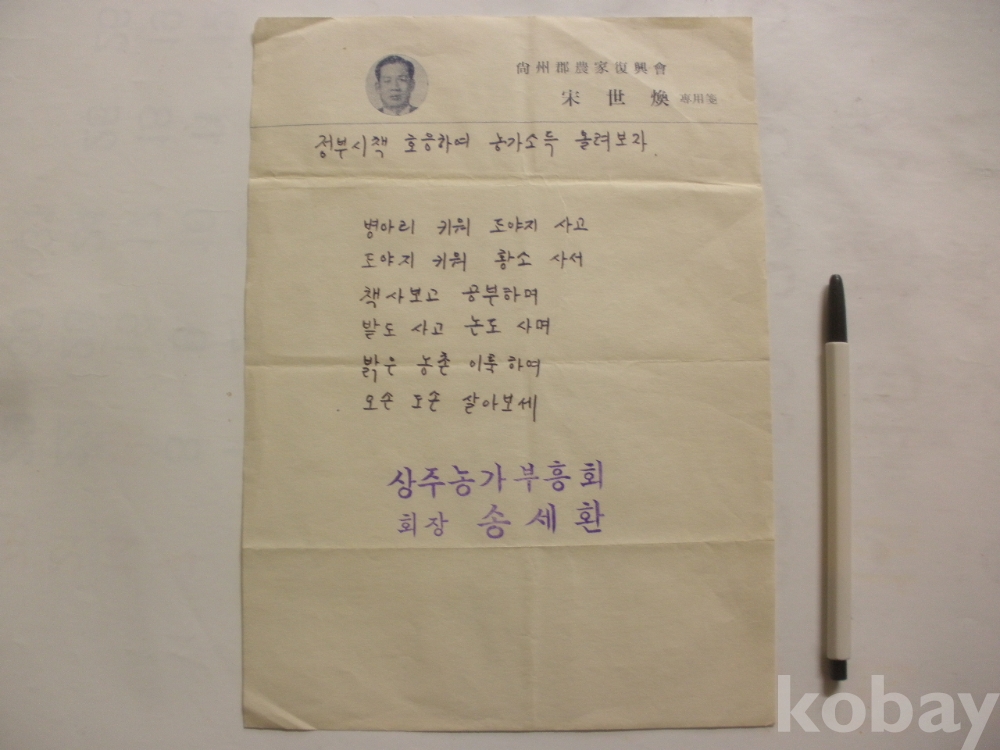 尙州郡農家復興會
宋世煥 專用箋
정부시책 호응하여 농가소득 올려보자
병아리 키워 도야지 사고
도야지 키워 황소 사서
책사보고 공부하며
밭도 사고 논도 사며
밝은 농촌 이룩하여
오손 도손 살아보세
상주농가부흥회
회장 송세환
kobay